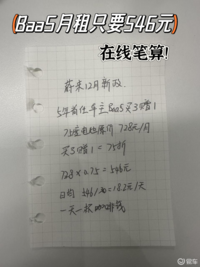 (BaaS月租只要546元)
在线笔算!
蔚来12月新政
5年首任车主BaaS买3赠1
75度电池原价 728元/月
买3赠1 = 75折
728×0.75 = 546元
日均 546/30=18.2元/天
一天一杯咖啡钱
爱车